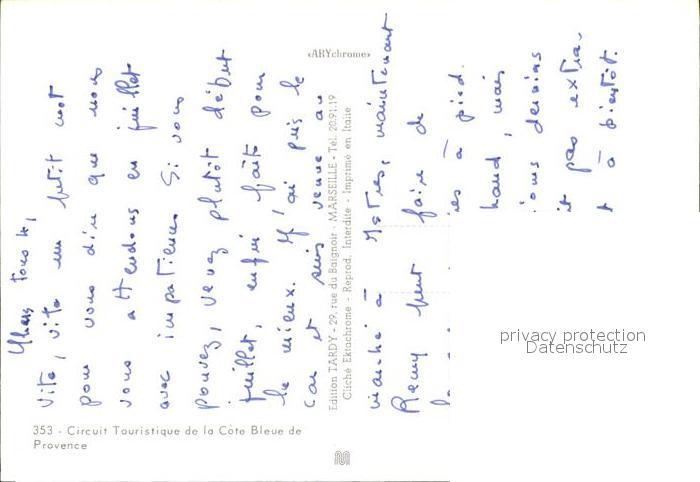 Chers tous 4,
vite, vite un petit mot
pour vous dire que nous
vous attendons en juillet
avec impatience. Si vous
pouvez, venez plutôt début
juillet, enfin faite pour
le mieux. J'ai pris le
car et suis venue au
marché à Istres, maintenant
Remy peut faire de
ies à pied.
haud, mais
ious dernias
it pas extra-
t à bientôt.
«ARYchrome»
Edition TARDY - 29, rue du Baignoir - MARSEILLE - Tél. 20.91.19
Cliché Ektachrome - Reprod. Interdite - Imprimé en Italie
353 - Circuit Touristique de la Côte Bleue de
Provence
privacy protection
Datenschutz